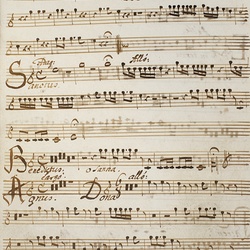 Allo:
Sanctus.
Benedictus. Osanna allo:
Agnus. Dona